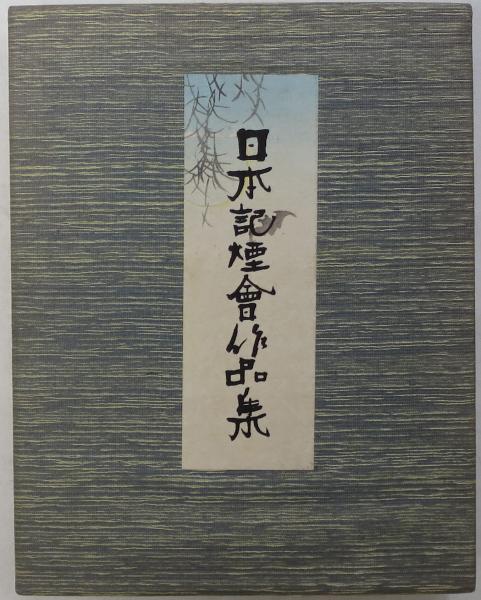 日本記煙會作品集